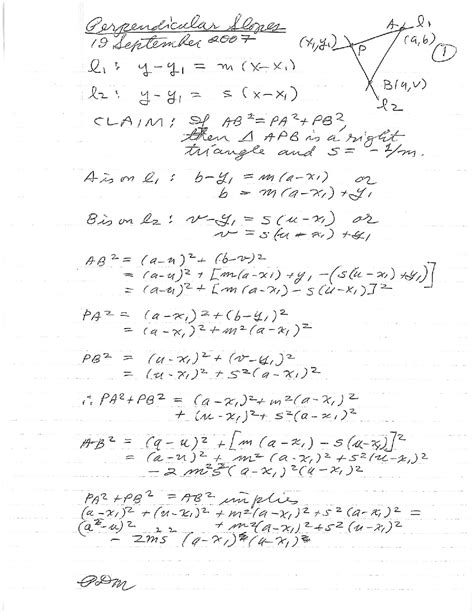 Perpendicular Slopes
19 September 2007
A l₁
(x₁,y₁) P (a,b) ①
B(u,v)
l₂
l₁: y-y₁ = m(x-x₁)
l₂: y-y₁ = s(x-x₁)
CLAIM: If AB²=PA²+PB²,
then Δ APB is a right
triangle and s= -1/m.
A is on l₁: b-y₁ = m(a-x₁) or
b = m(a-x₁)+y₁
B is on l₂: v-y₁ = s(u-x₁) or
v = s(u-x₁)+y₁
AB² = (a-u)²+(b-v)²
= (a-u)²+[m(a-x₁)+y₁-(s(u-x₁)+y₁)]
= (a-u)²+[m(a-x₁)-s(u-x₁)]²
PA² = (a-x₁)²+(b-y₁)²
= (a-x₁)²+m²(a-x₁)²
PB² = (u-x₁)²+(v-y₁)²
= (u-x₁)²+s²(a-x₁)²
∴ PA²+PB² = (a-x₁)²+m²(a-x₁)²
+(u-x₁)²+s²(a-x₁)²
AB² = (a-u)²+[m(a-x₁)-s(u-x₁)]²
= (a-u)²+m²(a-x₁)²+s²(u-x₁)²
-2m²s²(a-x₁)²(u-x₁)²
PA²+PB² = AB² implies
(a-x₁)²+(u-x₁)²+m²(a-x₁)²+s²(a-x₁)² =
(a-u)² +m²(a-x₁)²+s²(u-x₁)²
-2m²s²(a-x₁)²(u-x₁)²